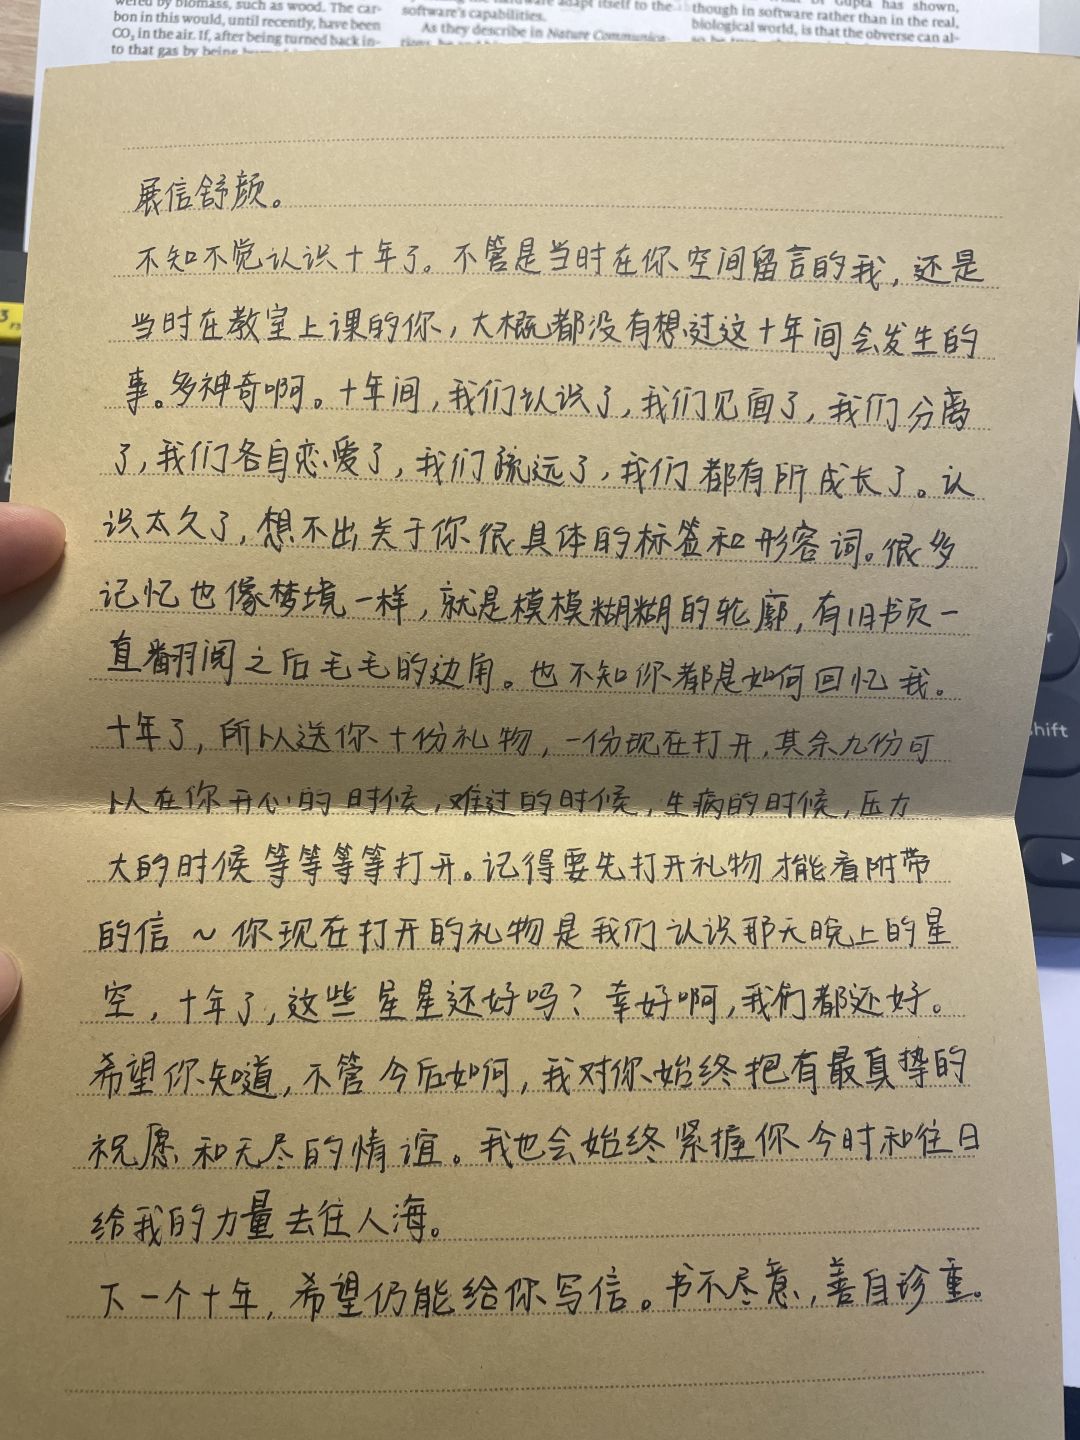 wered by biomass, such as wood. The car-
bon in this would, until recently, have been
CO₂ in the air. If, after being turned back in-
to that gas by being
adapt itself to the
software's capabilities.
As they describe in Nature Communica-
Gupta has shown,
though in software rather than in the real,
biological world, is that the obverse can al-
展信舒颜。
不知不觉认识十年了。不管是当时在你空间留言的我，还是
当时在教室上课的你，大概都没有想过这十年间会发生的
事。多神奇啊。十年间，我们认识了，我们见面了，我们分离
了，我们各自恋爱了，我们疏远了，我们都有所成长了。认
识太久了，想不出关于你很具体的标签和形容词。很多
记忆也像梦境一样，就是模模糊糊的轮廓，有旧书页一
直翻阅之后毛毛的边角。也不知你都是如何回忆我。
十年了，所以送你十份礼物，一份现在打开，其余九份可
以在你开心的时候，难过的时候，生病的时候，压力
大的时候等等等等打开。记得要先打开礼物才能看附带
的信～你现在打开的礼物是我们认识那天晚上的星
空，十年了，这些星星还好吗？幸好啊，我们都还好。
希望你知道，不管今后如何，我对你始终抱有最真挚的
祝愿和无尽的情谊。我也会始终紧握你今时和往日
给我的力量去往人海。
下一个十年，希望仍能给你写信。书不尽意，善自珍重。
shift